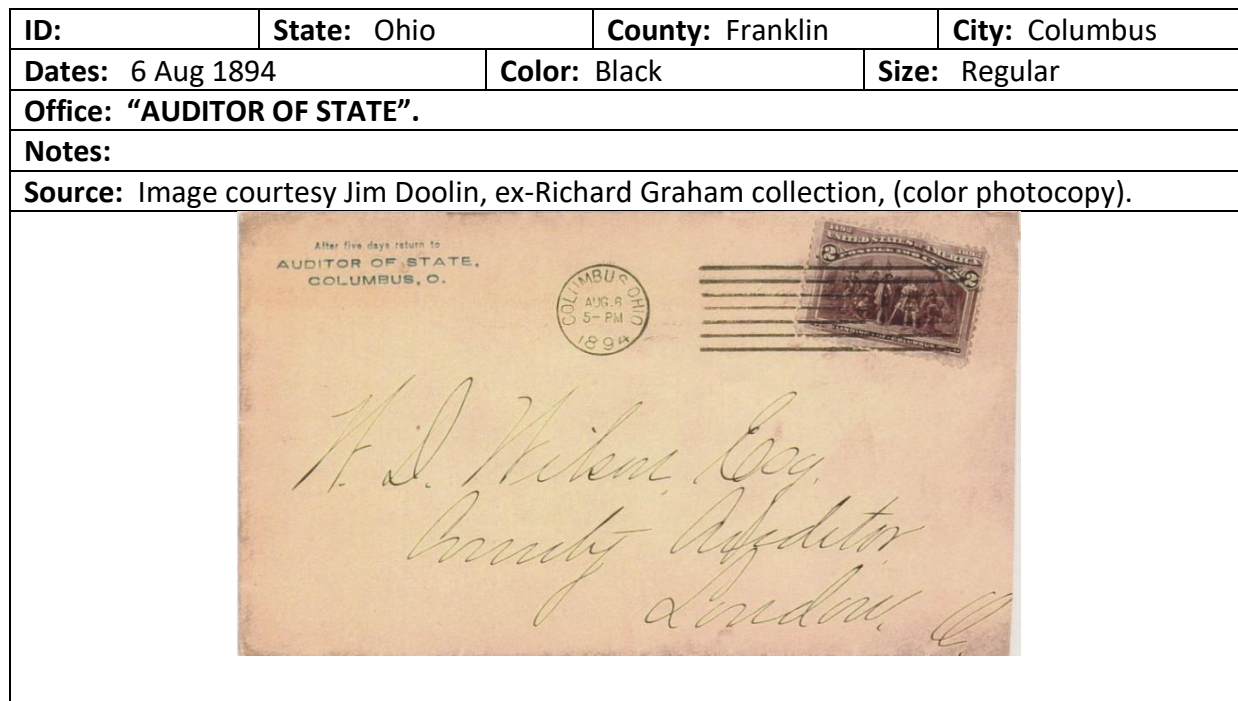 ID: State: Ohio County: Franklin City: Columbus
Dates: 6 Aug 1894 Color: Black Size: Regular
Office: “AUDITOR OF STATE”.
Notes:
Source: Image courtesy Jim Doolin, ex-Richard Graham collection, (color photocopy).
After five days return to
AUDITOR OF STATE,
COLUMBUS, O.
COLUMBUS, OHIO
AUG. 6
5- PM
1894
1492 1892
UNITED STATES OF AMERICA
2 POSTAGE TWO CENTS 2
LANDING OF COLUMBUS
Wilson, Esq.
County Auditor
London, O.